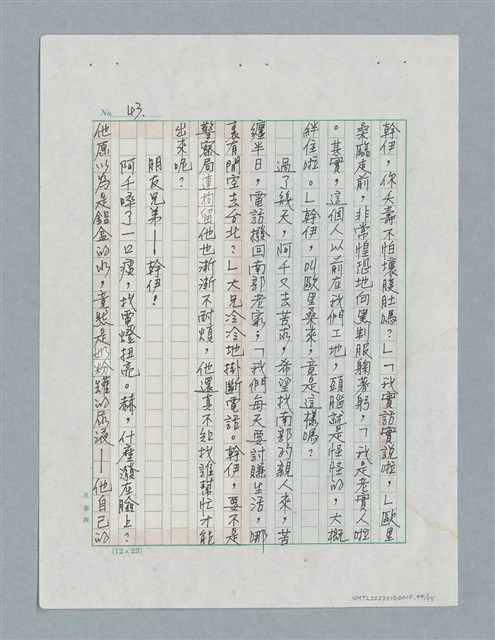 No. 43.
幹伊，你夭壽不怕壞腹肚嗎？」「我實訪實説啦，」歐里
桑臨走前，非常惶恐地向黑制服鞠著躬，「我是老實人啦
。其實，這個人以前在我們工地，頭腦就是怪怪的，大概
絆住啦。」幹伊，叫歐里桑來，竟是這樣嗎？
過了幾天，阿千又去苦求，希望找南部的親人來，苦
纏半日，電訪撥回南部老家，「我們每天要討賺生活，哪
裏有閒空去台北？」大兄冷冷地掛斷電話。幹伊，要不是
警察局連拘留他也漸漸不耐煩，他還真不知找誰幫忙才能
出來呢？
朋友兄弟——幹伊！
阿千嗆了一口痰，找電燈扭亮。赫，什麼潑在臉上？
他原以為是鋁盆的水，竟然是奶粉罐的尿液——他自己的
(12×25)
NMTL20270100010.44/75